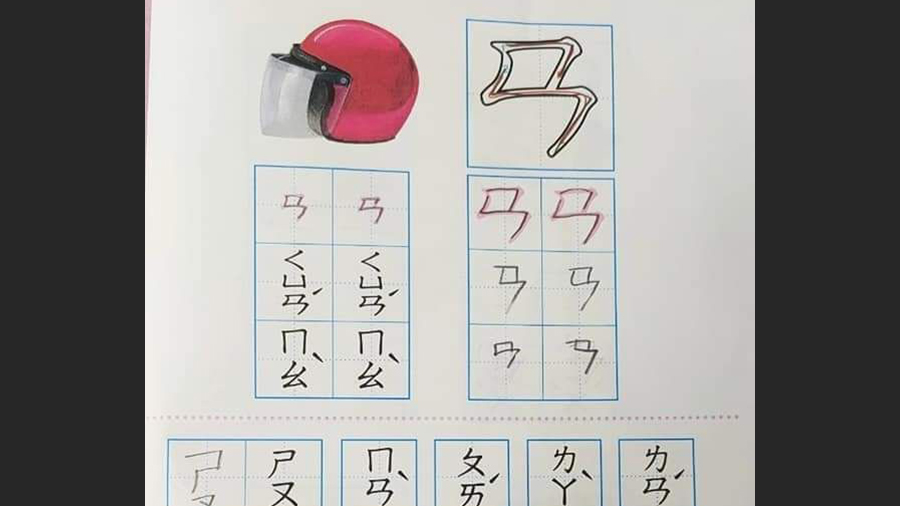 ㄢ
ㄢ ㄢ
ㄑㄩㄢˊ ㄑㄩㄢˊ
ㄇㄠˋ ㄇㄠˋ
ㄢ ㄢ
ㄢ ㄢ
ㄢ ㄢ
ㄕㄡ ㄕㄡ ㄇㄢˋ ㄆㄞˊ ㄌㄚˋ ㄌㄢˊ